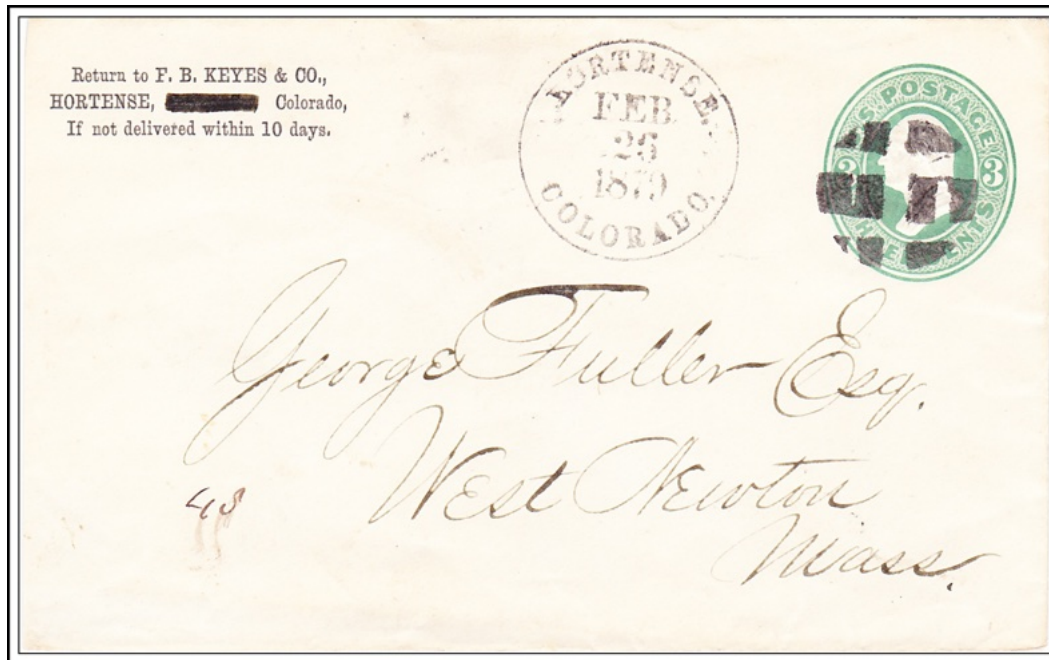 Return to F. B. KEYES & CO.,
HORTENSE, Colorado,
If not delivered within 10 days.
HORTENSE.
FEB
26
1879
COLORADO.
U.S. POSTAGE
3 3
THREE CENTS
George Fuller Esq.
West Newton
Mass.
48